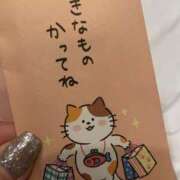 きなもの
かってね